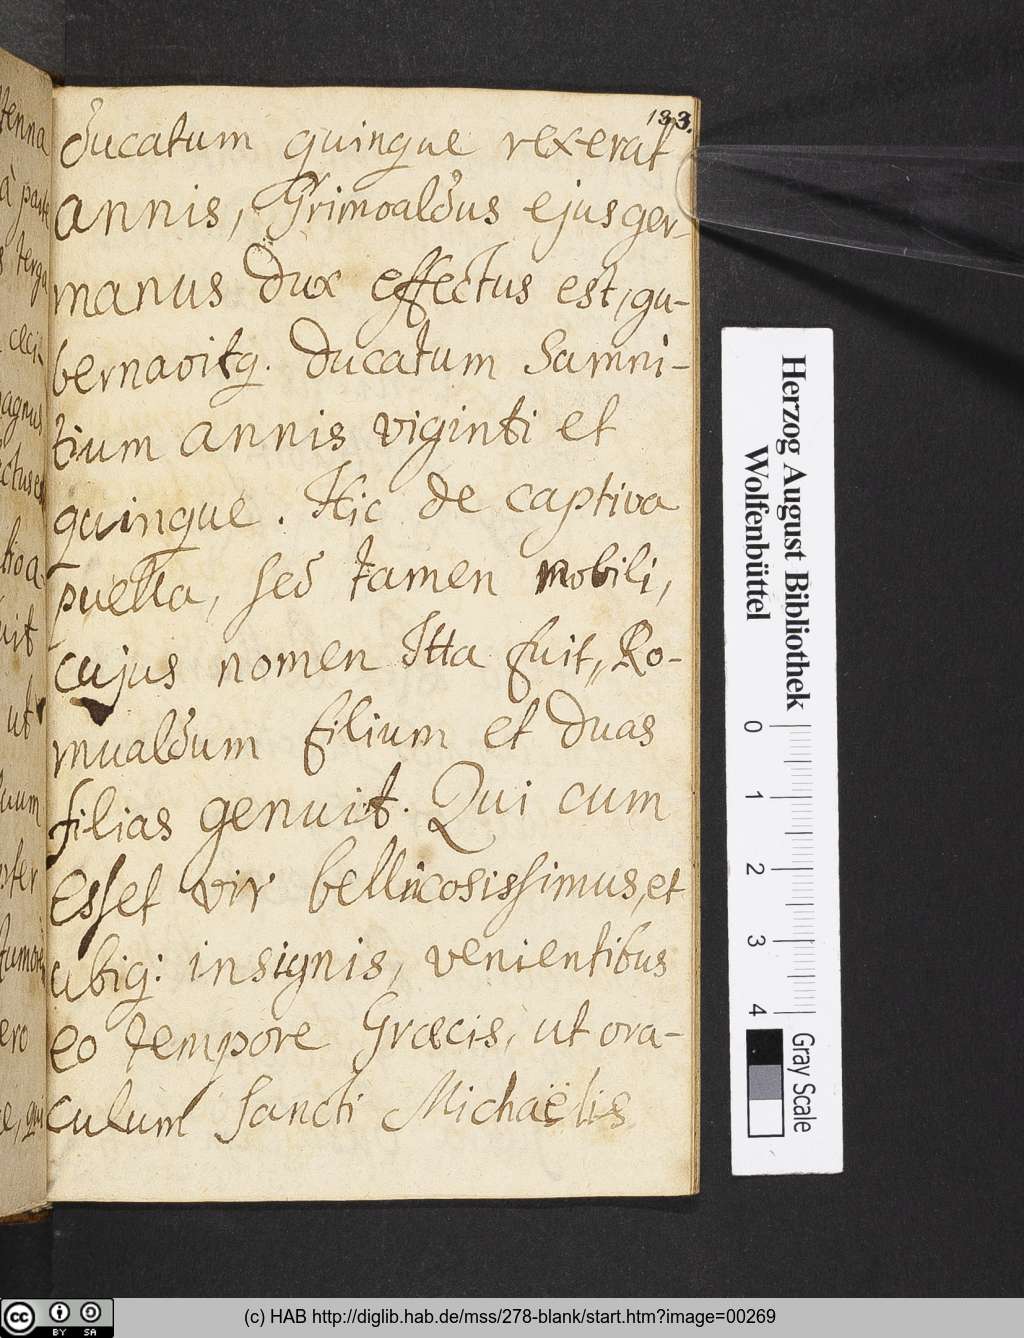 133.
ducatum quinque rexerat
annis, Grimoaldus ejus ger-
manus dux effectus est, gu-
bernavitq. ducatum Samni-
tium annis viginti et
quinque. Hic de captiva
puella, sed tamen nobili,
cujus nomen Itta fuit, Ro-
mualdum filium et duas
filias genuit. Qui cum
esset vir bellicosissimus, et
ubiq: insignis, venientibus
eo tempore Græcis, ut ora-
culum Sancti Michaëlis
Herzog August Bibliothek
Wolfenbüttel
0 1 2 3 4
Gray Scale
(c) HAB http://diglib.hab.de/mss/278-blank/start.htm?image=00269
cc BY SA